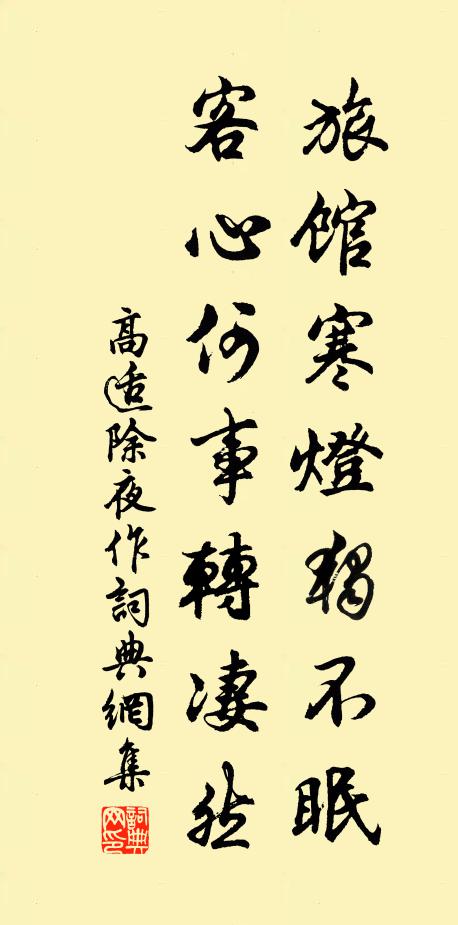 旅館寒燈獨不眠
客心何事轉凄然
高適除夜作詞典網集
詞典網印